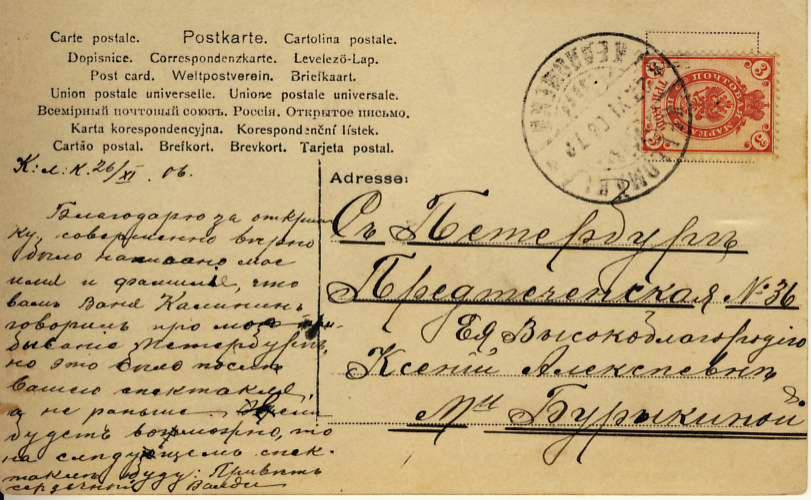 Carte postale. Postkarte. Cartolina postale.
Dopisnice. Correspondenzkarte. Levelező-Lap.
Post card. Weltpostverein. Briefkaart.
Union postale universelle. Unione postale universale.
Всемірный почтовый союзъ. Россія. Открытое письмо.
Karta korespondencyjna. Korespondenční lístek.
Cartão postal. Brefkort. Brevkort. Tarjeta postal.
К: л: к. 26/XI. 06.
Благодарю за открыт-
ку, совершенно вѣрно
было написано мое
имя и фамилія, что
вамъ Ваня Калининъ
говорилъ про мое при-
бываніе Петербургъ,
но это было послѣ
Вашего спектакля,
а не раньше, если
будетъ возможно, то
на слѣдующемъ спек-
таклѣ буду: Привѣтъ
сердечный
Adresse:
Съ Петербургъ
Предтеченская № 36
Ея Высокоблагородію
Ксеній Алексѣевнѣ
Бурыкиной
3 3
ПОЧТОВАЯ МАРКА
ТРИ КОП.
3